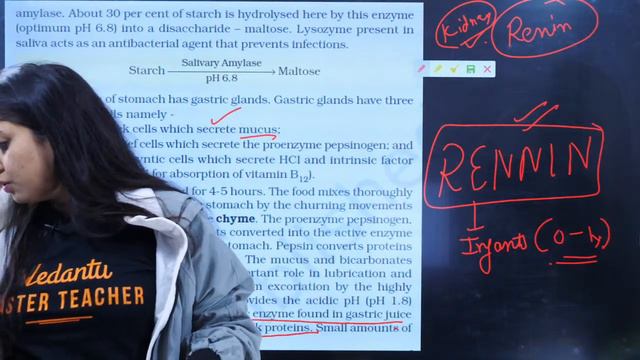 amylase. About 30 per cent of starch is hydrolysed here by this enzyme
(optimum pH 6.8) into a disaccharide – maltose. Lysozyme present in
saliva acts as an antibacterial agent that prevents infections.
Salivary Amylase
Starch Maltose
pH 6.8
of stomach has gastric glands. Gastric glands have three
namely -
cells which secrete mucus;
cells which secrete the proenzyme pepsinogen; and
cells which secrete HCl and intrinsic factor
for absorption of vitamin B12).
for 4-5 hours. The food mixes thoroughly
stomach by the churning movements
chyme. The proenzyme pepsinogen,
converted into the active enzyme
stomach. Pepsin converts proteins
The mucus and bicarbonates
role in lubrication and
excoriation by the highly
the acidic pH (pH 1.8)
enzyme found in gastric juice
proteins. Small amounts of
Kidney
Renin
RENNIN
Infants (0-
Vedantu
MASTER TEACHER